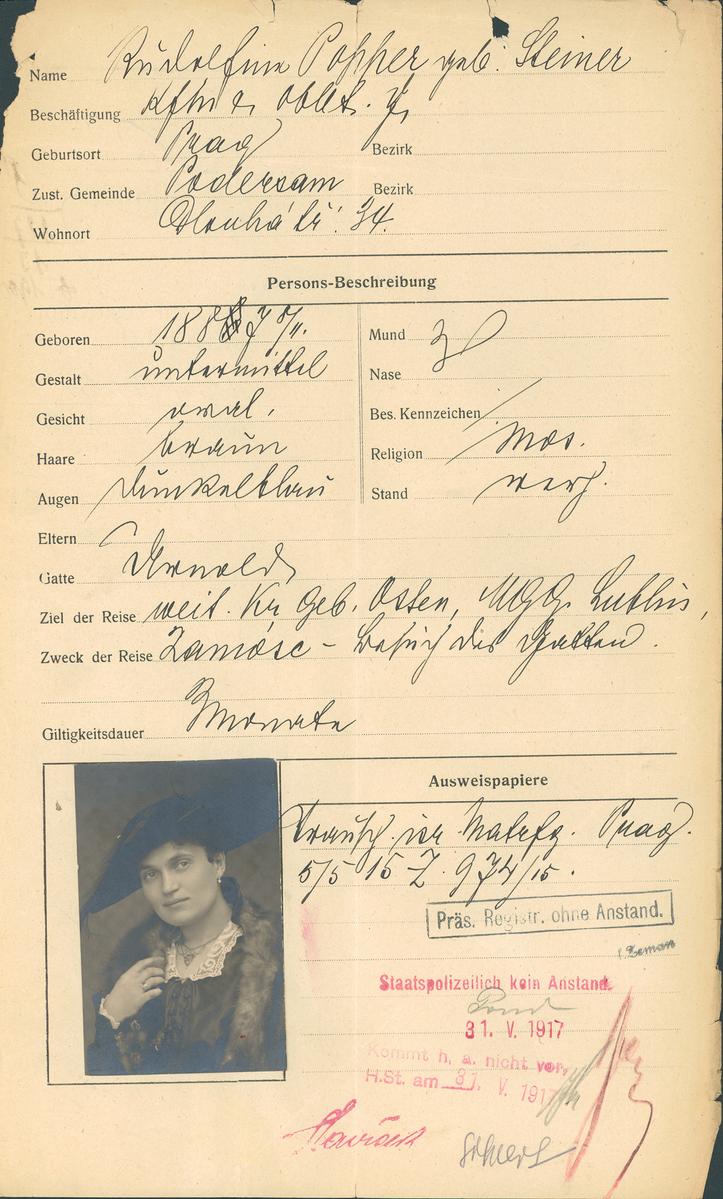 Name Rudolfine Popper geb. Steiner
Beschäftigung Kfm Oblt.
Geburtsort Prag Bezirk
Zust. Gemeinde Podersam Bezirk
Wohnort Dlouhá tř. 34.
Persons-Beschreibung
Geboren 188 7
Gestalt untermittel
Gesicht oval.
Haare braun
Augen dunkelblau
Mund
Nase
Bes. Kennzeichen
Religion Mos.
Stand verh.
Eltern
Gatte Arnold
Ziel der Reise weit. Kr. Geb. Osten, MGG. Lublin,
Zweck der Reise Zamósc - Besuch des Gatten.
Giltigkeitsdauer 3 Monate
Ausweispapiere
Trausch. isr. Matrfg. Prag.
5/5 15 Z. 974/15.
Präs. Registr. ohne Anstand.
Zeman
Staatspolizeilich kein Anstand.
31. V. 1917
Kommt h. a. nicht vor.
H.St. am 31. V. 1917